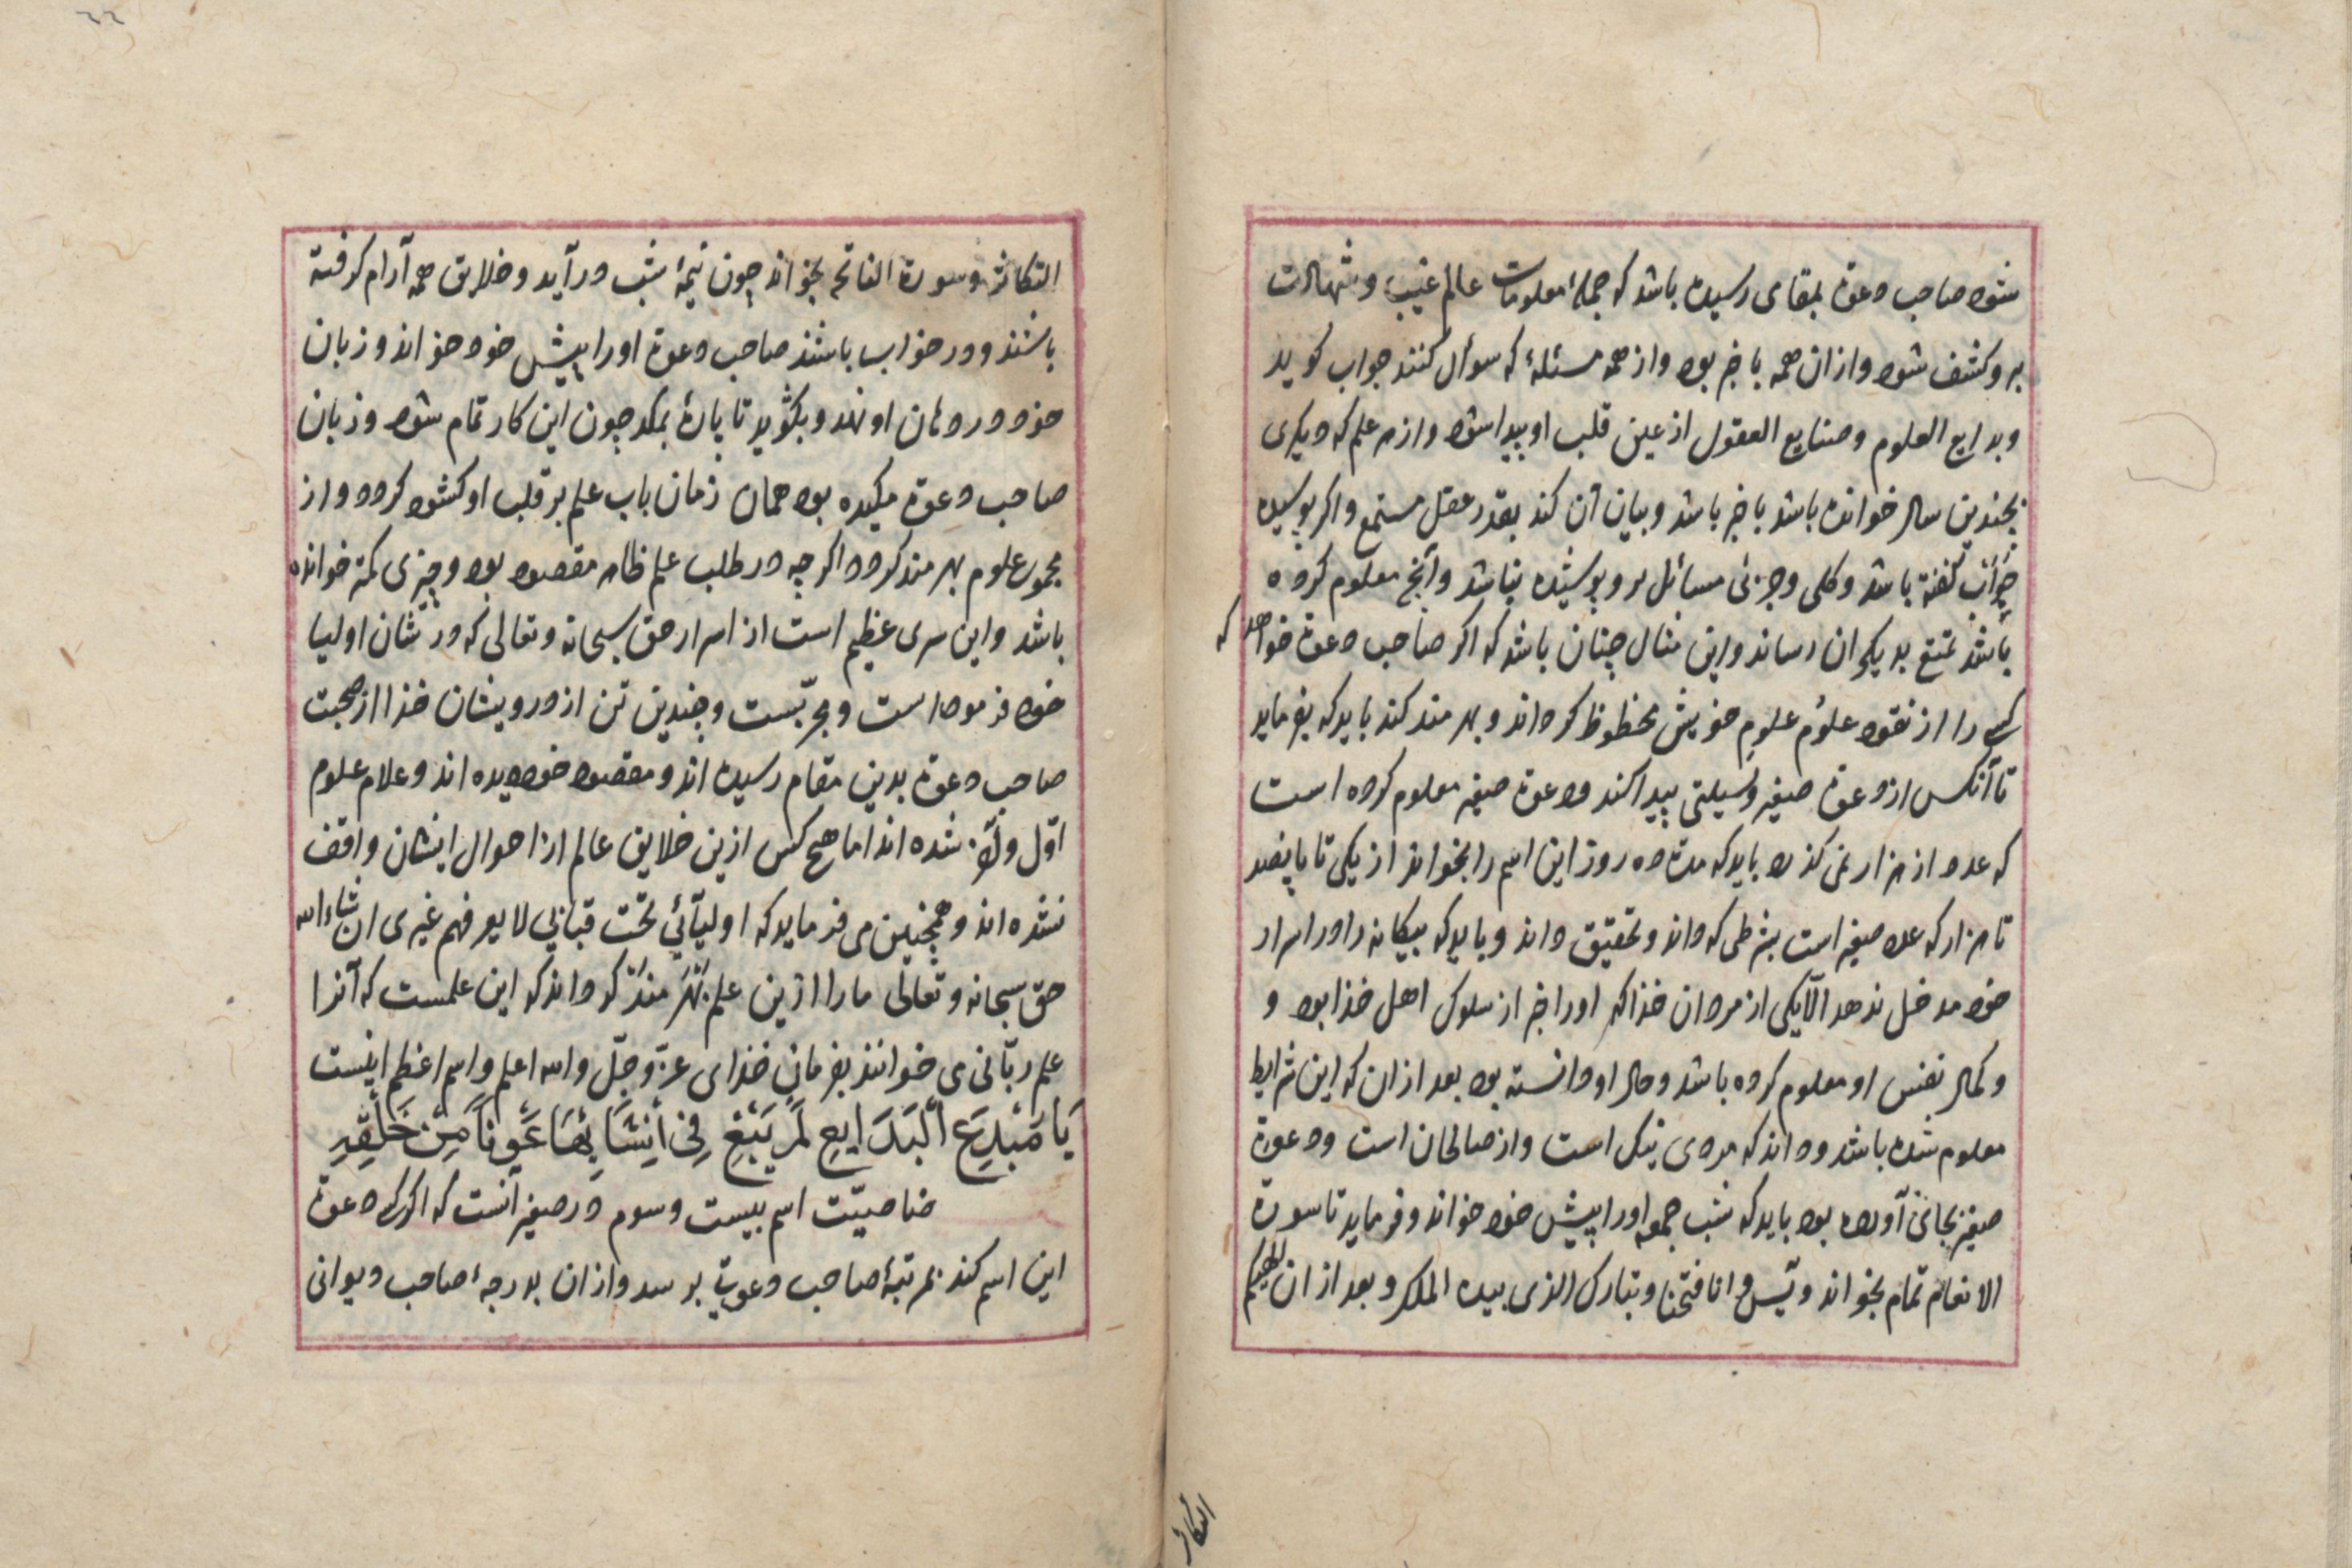 شود صاحب دعوة بمقامی رسیده باشد که جملهٔ معلومات عالم غیب و شهادت
برو کشف شود و از ان همه با خبر بود و از همه مسئلهٔ که سوأل کنند جواب کوید
و بدایع العلوم و صنایع العقول از عین قلب او پیدا شود و از هر علم که دیکری
بچندین سال خوانده باشد با خبر باشد و بیان آن کند بقدر عقل مستمع و اکر پوسیده
کفته باشد و کلی و جزئی مسائل برو پوشیده نباشد و آنچ معلوم کرده
باشد تمتع بدیکران رساند و این مثال چنان باشد که اکر صاحب دعوة خواهد که
کسی را از نقود علوم علوم خویش محظوظ کرداند و بهرمند کند باید که بفرماید
تا آنکس از دعوة صغیر وسیلتی پیدا کند و دعوة صغیر معلوم کرده است
که عدد از هزار نمی کذرد باید که مدة ده روز این اسم را بخواند از یکی تا پانصد
تا هزار که عدد صغیر است بشرطی که داند و تحقیق داند و باید که بیکانه را در اسرار
خود مدخل ندهد الّا یکی از مردان خدا که او را خبر از سلوک اهل خدا بود و
و کمال نفس او معلوم کرده باشد و حال او دانسته بود بعد از ان که این شرایط
معلوم شده باشد و داند که مردی نیک است و از صالحان است و دعوة
صغیر بجای آورده بود باید که شب جمعه او را پیش خود خواند و فرماید تا سورة
الانعام تمام بخواند و یس و انا فتحنا و تبارک الذی بیده الملک و بعد از ان الهیکم
التکاثر
التکاثر و سورة الفاتحه بخواند چون نیمهٔ شب در آید و خلایق همه آرام کرفته
باشند و در خواب باشند صاحب دعوة او را پیش خود خواند و زبان
خود در دهان او نهد و بکوید تا پارهٔ بمکد چون این کار تمام شود و زبان
صاحب دعوة میکیده بود همان زمان باب علم بر قلب او کشوده کردد و از
مجموع علوم بهرمند کردد اکرچه در طلب علم ظاهر مقصود بود و چیزی کمتر خوانده
باشد و این سری عظیم است از اسرار حق سبحانه و تعالی که در شان اولیا
خود فرموده است و مجرّبست و چندین تن از درویشان خدا از صحبت
صاحب دعوة بدین مقام رسیده اند و مقصود خود دیده اند و علام علوم
اوّل و آخر شده اند اما هیچ کس ازین خلایق عالم از احوال ایشان واقف
نشده اند و همچنین می فرماید که اولیآئی تحت قبابی لا یعرفهم غیری ان شاء الله
حق سبحانه و تعالی ما را ازین علم بهرمند کرداند که این علمست که آنرا
علم ربّانی می خوانند بفرمان خدای عزّ و جلّ والله اعلم و اسم اعظم اینست
یَا مُبْدِعَ الْبَدَایِعِ لَمْ یَبْغِ فِی اِنْشَائِهَا عَوْنًا مِنْ خَلْقِهِ
خاصیّت اسم بیست و سوم در صغیر آنست که اکر کسی دعوة
این اسم کند بمرتبهٔ صاحب دعوت برسد و از ان بدرجهٔ صاحب دیوانی